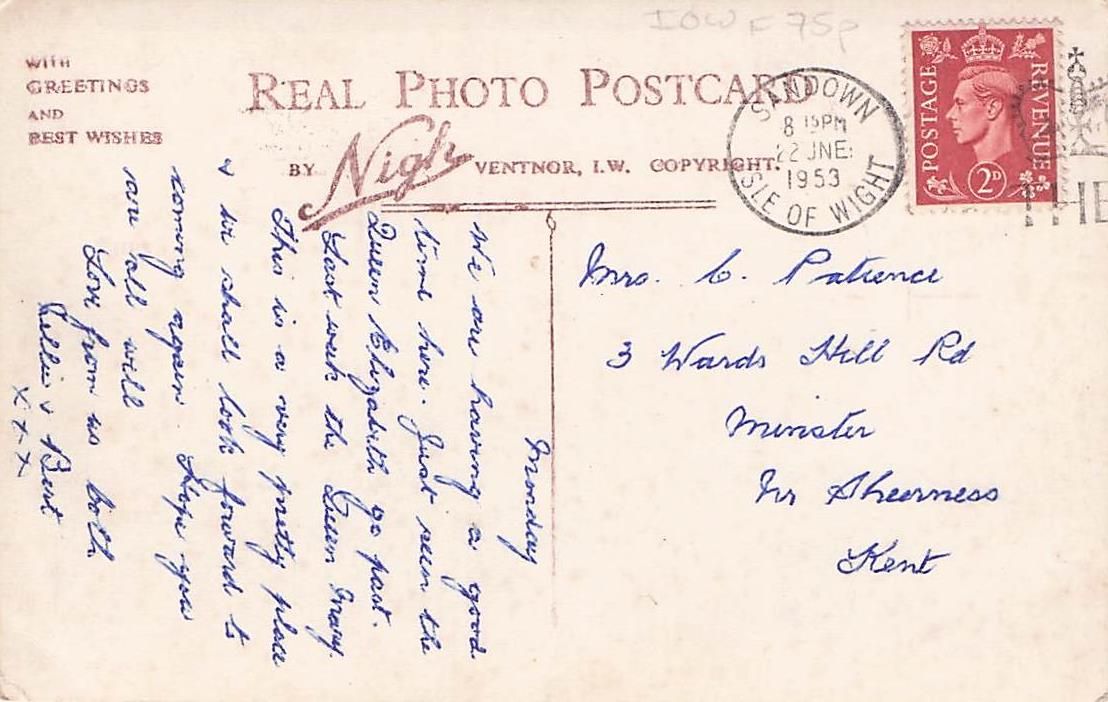 IOW F 75p
WITH
GREETINGS
AND
BEST WISHES
REAL PHOTO POSTCARD
BY Nigh VENTNOR, I.W. COPYRIGHT.
SANDOWN
8 15PM
22 JNE
1953
ISLE OF WIGHT
POSTAGE
REVENUE
2D
Monday
We are having a good
time here. Just seen the
Queen Elizabeth go past.
Last week the Queen Mary.
This is a very pretty place
& we shall look forward to
coming again. Hope you
are all well
Love from us both
Nellie & Bert
x x x
Mrs. C. Patience
3 Wards Hill Rd
Minster
Nr Sheerness
Kent